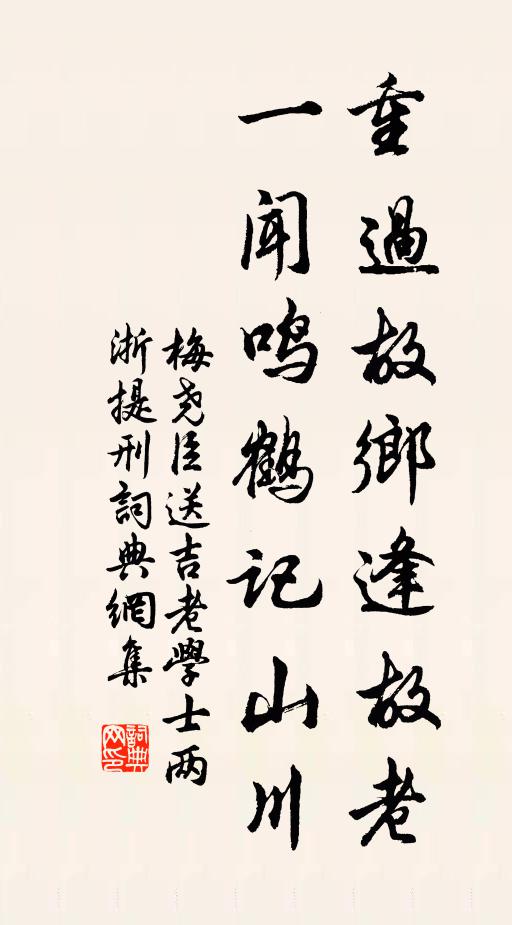 重過故鄉逢故老
一聞鳴鶴記山川
梅尧臣送吉老學士两
浙提刑詞典網集
詞典网印